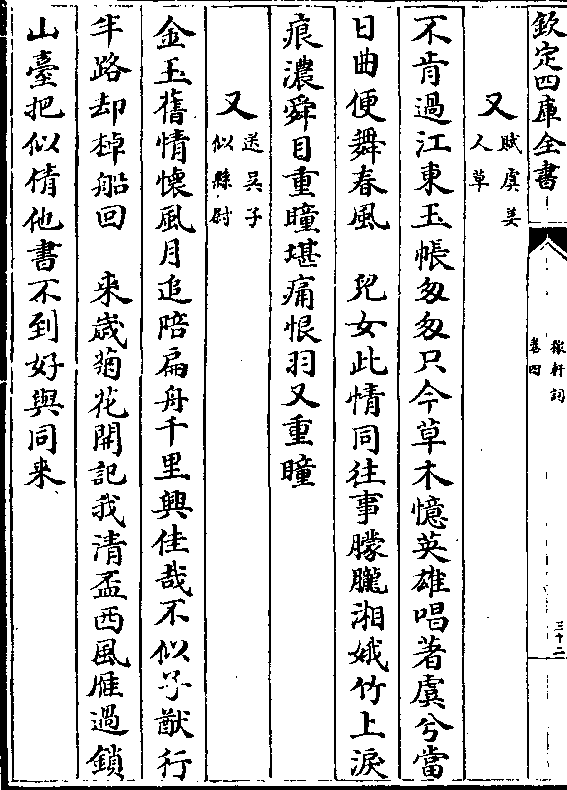 欽定四庫全書
稼軒詞
卷四
三十二
又賦虞美
人草
不肯過江東玉帳匆匆只今草木憶英雄唱著虞兮當
日曲便舞春風　兒女此情同往事朦朧湘娥竹上淚
痕濃舜目重瞳堪痛恨羽又重瞳
又送吳子
似縣尉
金玉舊情懷風月追陪扁舟千里興佳哉不似子猷行
半路却棹船回　來歲菊花開記我清盃西風雁過鎖
山臺把似倩他書不到好與同来